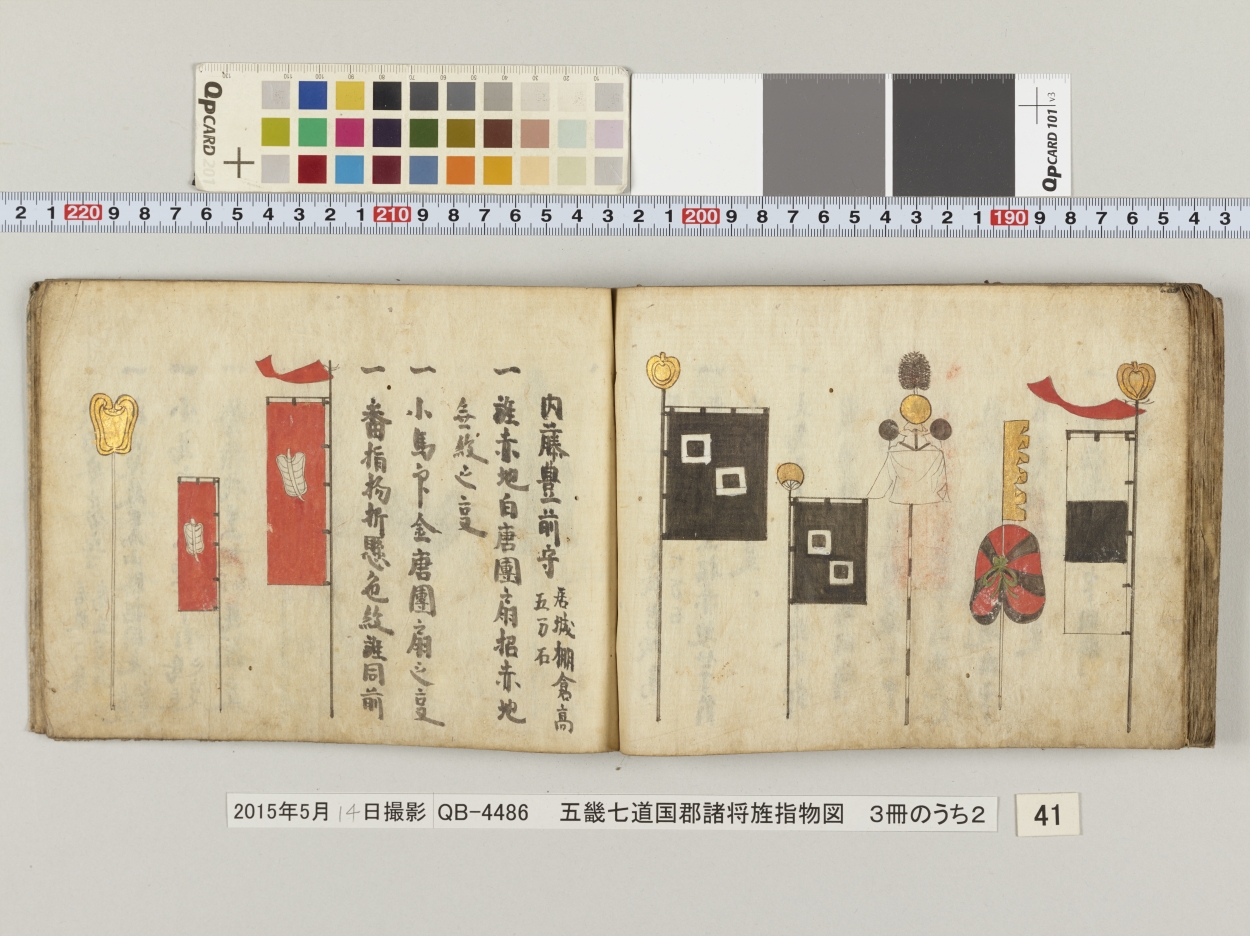 QpCARD 201
QpCARD 101 v3
2 1 220 9 8 7 6 5 4 3 2 1 210 9 8 7 6 5 4 3 2 1 200 9 8 7 6 5 4 3 2 1 190 9 8 7 6 5 4 3
内藤豊前守 居城棚倉高
五万石
一 旌赤地白唐團扇招赤地
無紋之㕝
一 小馬印金唐團扇之㕝
一 番指物折懸色紋旌同前
2015年5月14日撮影 QB-4486 五畿七道国郡諸将旌指物図 3冊のうち2
41